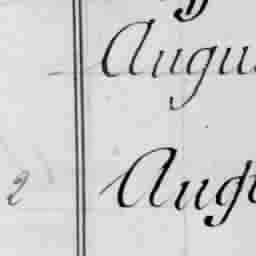 Augus
2 Aug